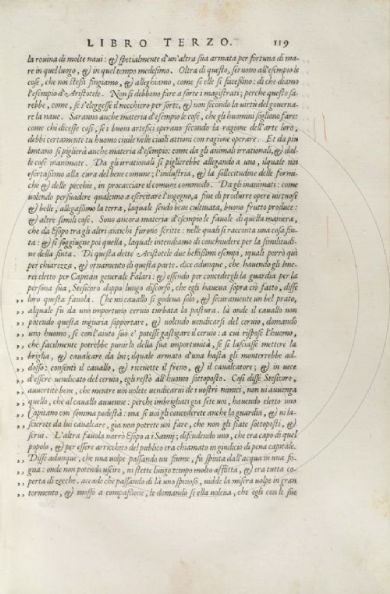 LIBRO TERZO. 119
la rouina di molte naui: & spetialmente d'un'altra sua armata per fortuna di ma-
re in quel luogo, & in quel tempo medesimo. Oltra di questo, seruono all'esempio le
cose, che noi stessi fingiamo, & alleghiamo, come se elle si facessino: di che diamo
l'esempio d'Aristotele. Non si debbono fare a sorte i magistrati; perche questo sa-
rebbe, come, se s'eleggesse il nocchiero per sorte, & non secondo la uirtù del gouerna-
re la naue. Saranno anche materia d'esempio le cose, che gli huomini sogliono fare:
come chi dicesse così, se i buoni artefici operano secondo la ragione dell'arte loro,
debbi certamente tu huomo ciuile nelle ciuili attioni con ragione operare. Et da piu
lontano si piglierà anche materia d'esempio: come da gli animali irrationali, & dal-
le cose inanimate. Da gli irrationali si piglierebbe allegando a uno, ilquale noi
esortassimo alla cura del bene comune; l'industria, & la sollecitudine delle formi-
che & delle pecchie, in procacciare il comune commodo. Da gli inanimati: come
uolendo persuadere qualcuno a esercitare l'ingegno, a fine di produrre opere uirtuose
& belle; allegassimo la terra, laquale sendo bene cultiuata, buono frutto produce:
& altre simili cose. Sono ancora materia d'esempio le fauole di quella maniera,
che da Esopo tra gli altri antichi furono scritte: nelle quali si racconta una cosa fin-
ta: & si soggiugne poi quella, laquale intendiamo di conchiudere per la similitudi-
ne della finta. Di questa dette Aristotele due bellissimi esempi, iquali porrò quì
per chiarezza, & ornamento di questa parte. dice adunque, che hauendo gli Ime-
resi eletto per Capitano generale Falari: & essendo per concedergli la guardia per la
persona sua, Stesicoro dappo lungo discorso, che egli haueua sopra ciò fatto, disse
loro questa fauola. Che un cauallo si godeua solo, & sicuramente un bel prato,
alquale fu da uno importuno ceruio turbata la pastura. la onde il cauallo non
potendo questa ingiuria sopportare, & uolendo uendicarsi del ceruio, domandò
uno huomo, se con l'aiuto suo e' potesse gastigare il ceruio: a cui rispose l'huomo,
che facilmente potrebbe punirlo della sua importunità, se si lasciasse mettere la
briglia, & caualcare da lui; ilquale armato d'una hasta gli monterrebbe ad-
dosso: consentì il cauallo, & riceuette il freno, & il caualcatore; & in uece
d'essere uendicato del ceruio, egli restò all'huomo sottoposto. Così disse Stesicoro,
auuertite bene, che mentre uoi uolete uendicarui de i uostri nimici, non ui auuenga
quello, che al cauallo auuenne: perche imbrigliati già sete uoi, hauendo eletto uno
Capitano con somma podestà: ma se uoi gli concederete anche la guardia, & ui la-
scierete da lui caualcare, già non potrete uoi fare, che non gli siate sottoposti, &
serui. L'altra fauola narrò Esopo a i Samij; difendendo uno, che era capo di quel
popolo, & per essere arricchito del publico era chiamato in giudicio di pena capitale.
Disse adunque, che una uolpe passando un fiume, fu spinta dall'acqua in una fo-
gna: onde non potendo uscire, ui stette lungo tempo molto afflitta, & era tutta co-
perta di zecche. accadè che passando di là uno spinoso, uidde la misera uolpe in gran
tormento, & mosso a compassione, le domandò se ella uoleua, che egli con le sue